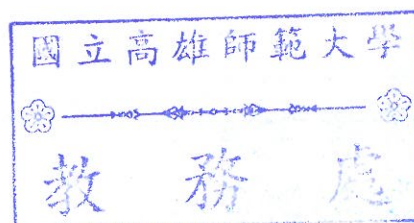 國立高雄師範大學
教務處